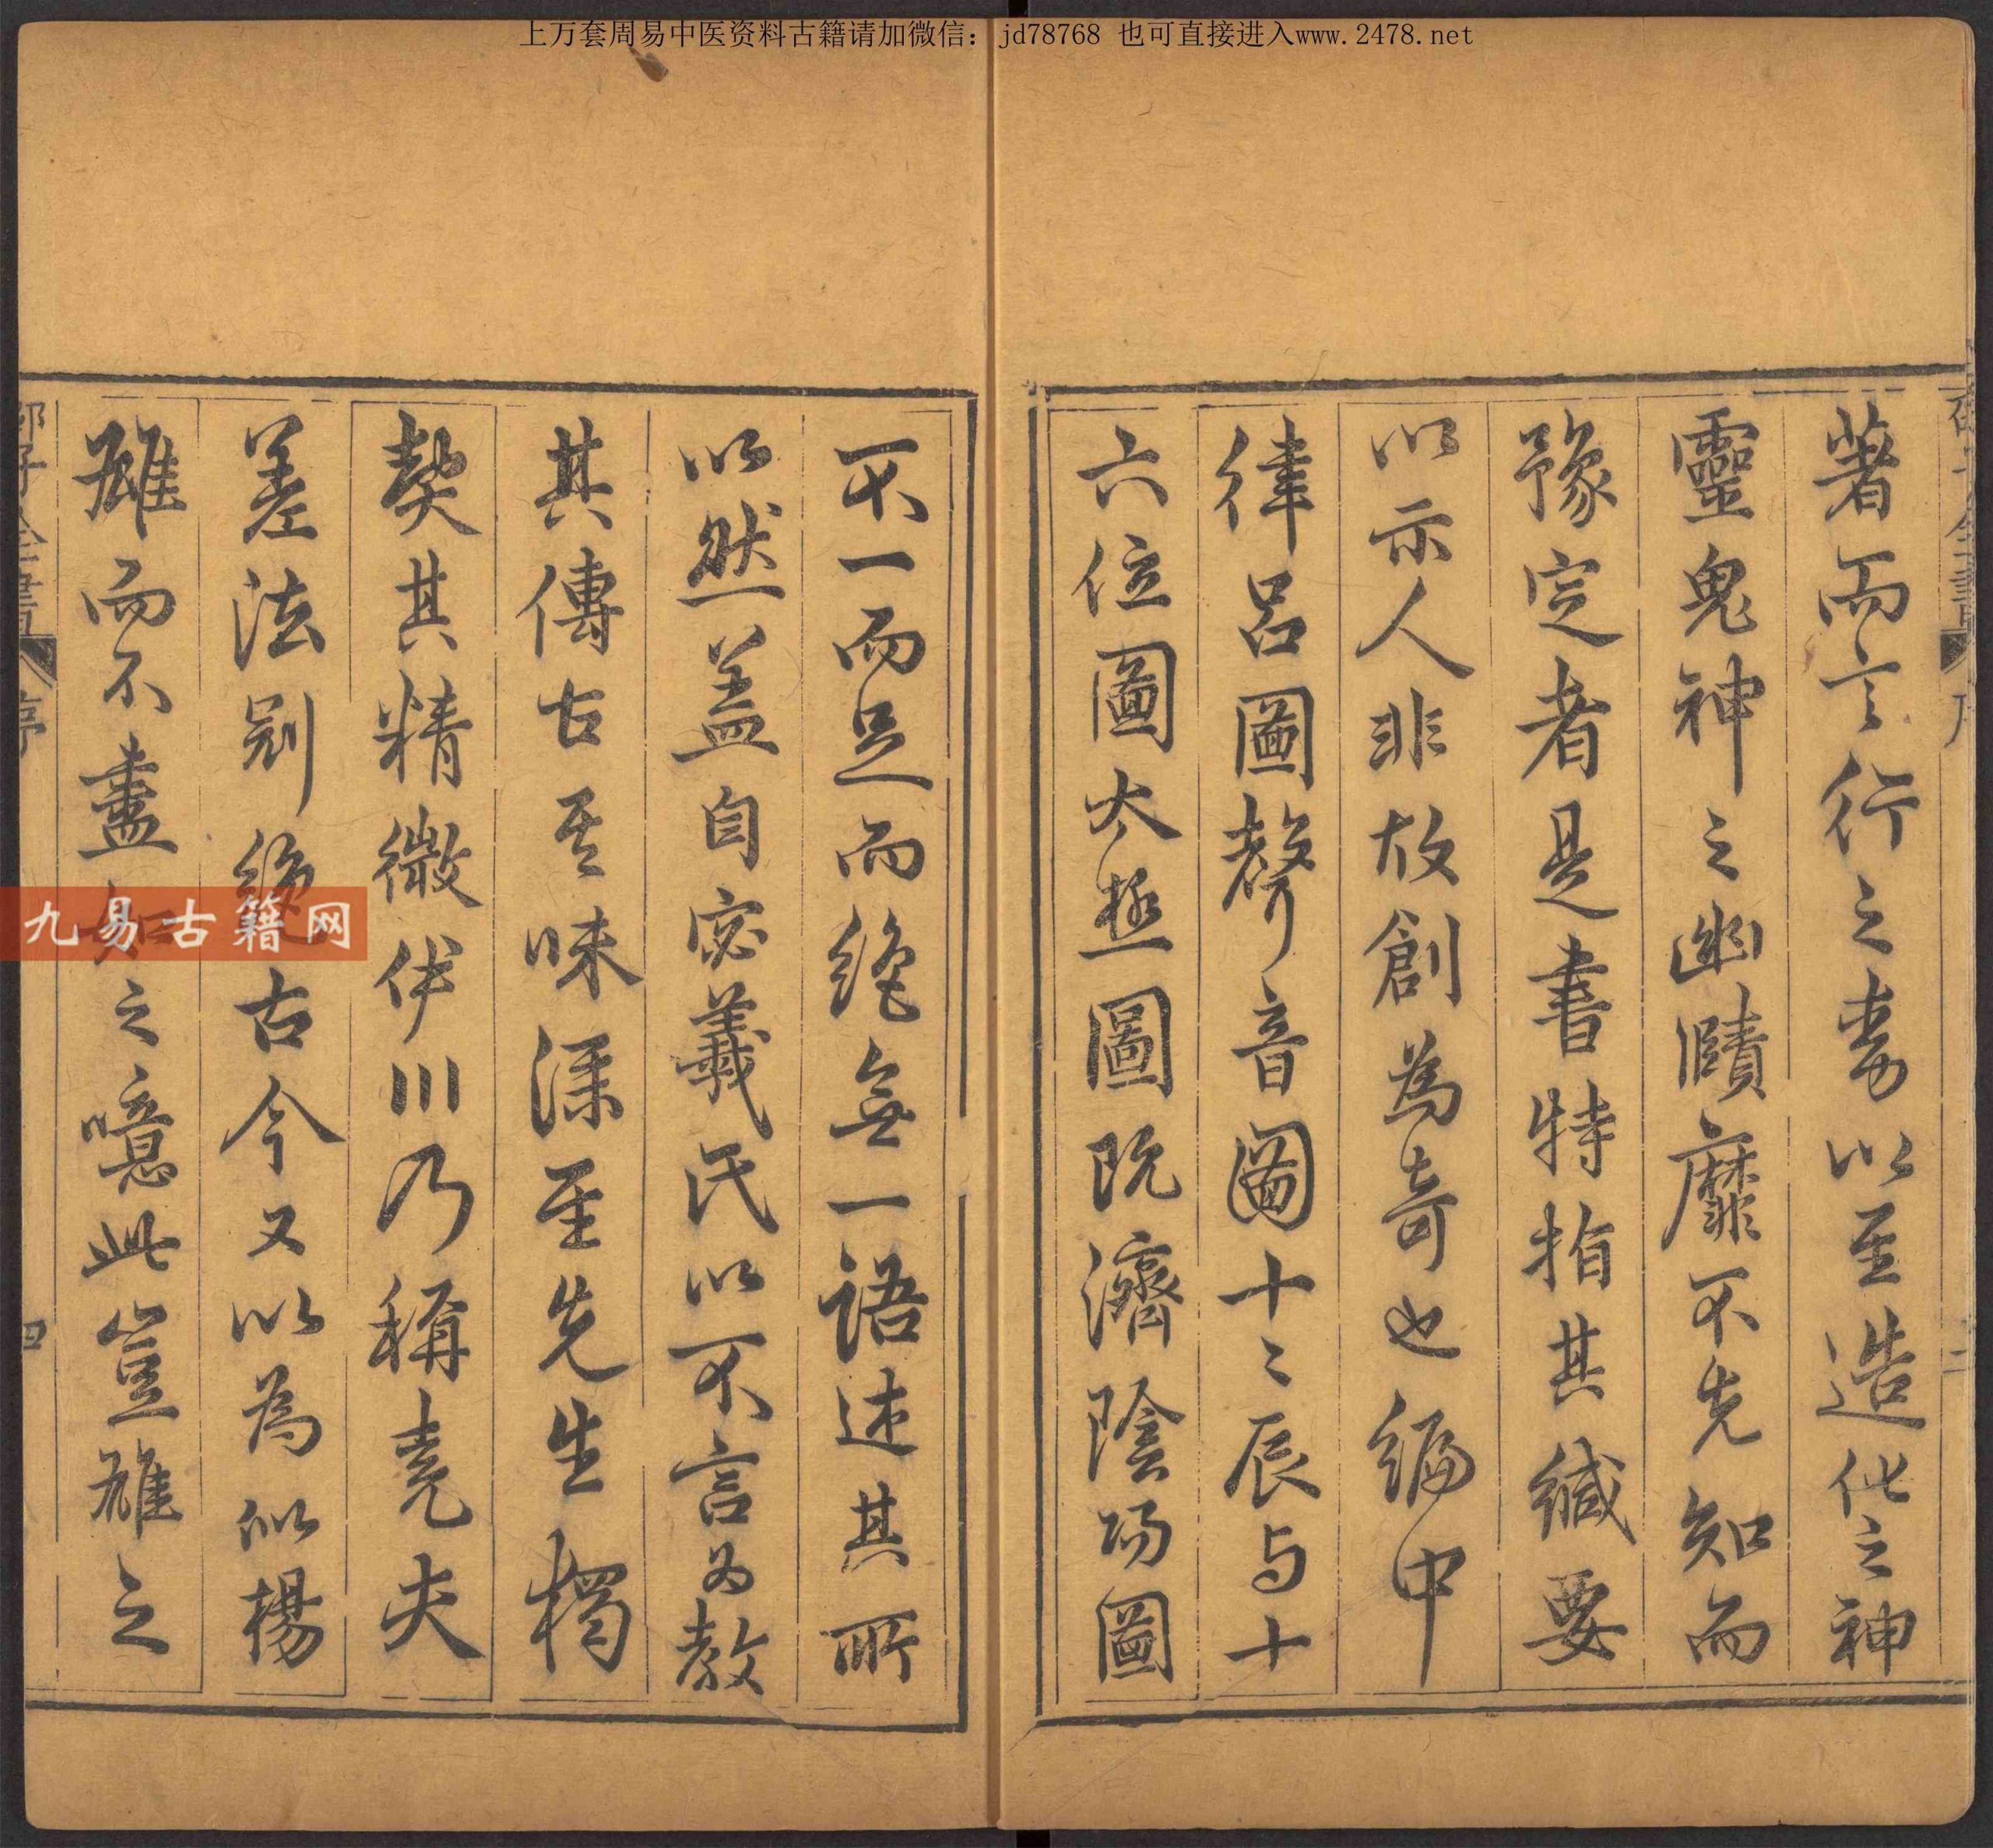 上万套周易中医资料古籍请加微信：jd78768 也可直接进入www.2478.net
著而言行之書以至造化之神
靈鬼神之幽賾靡不先知而
豫定者是書特指其緘要
以示人非故創為奇也編中
律呂圖聲音圖十二辰与十
六位圖太極圖既濟陰陽圖
不一而足而絶無一語述其所
以然蓋自宓羲氏以不言为教
其傳古其味深至先生獨
契其精微伊川乃稱堯夫
差法別絶古今又以為似楊
雄而不盡如之噫此豈雄之
序
四
九易古籍网